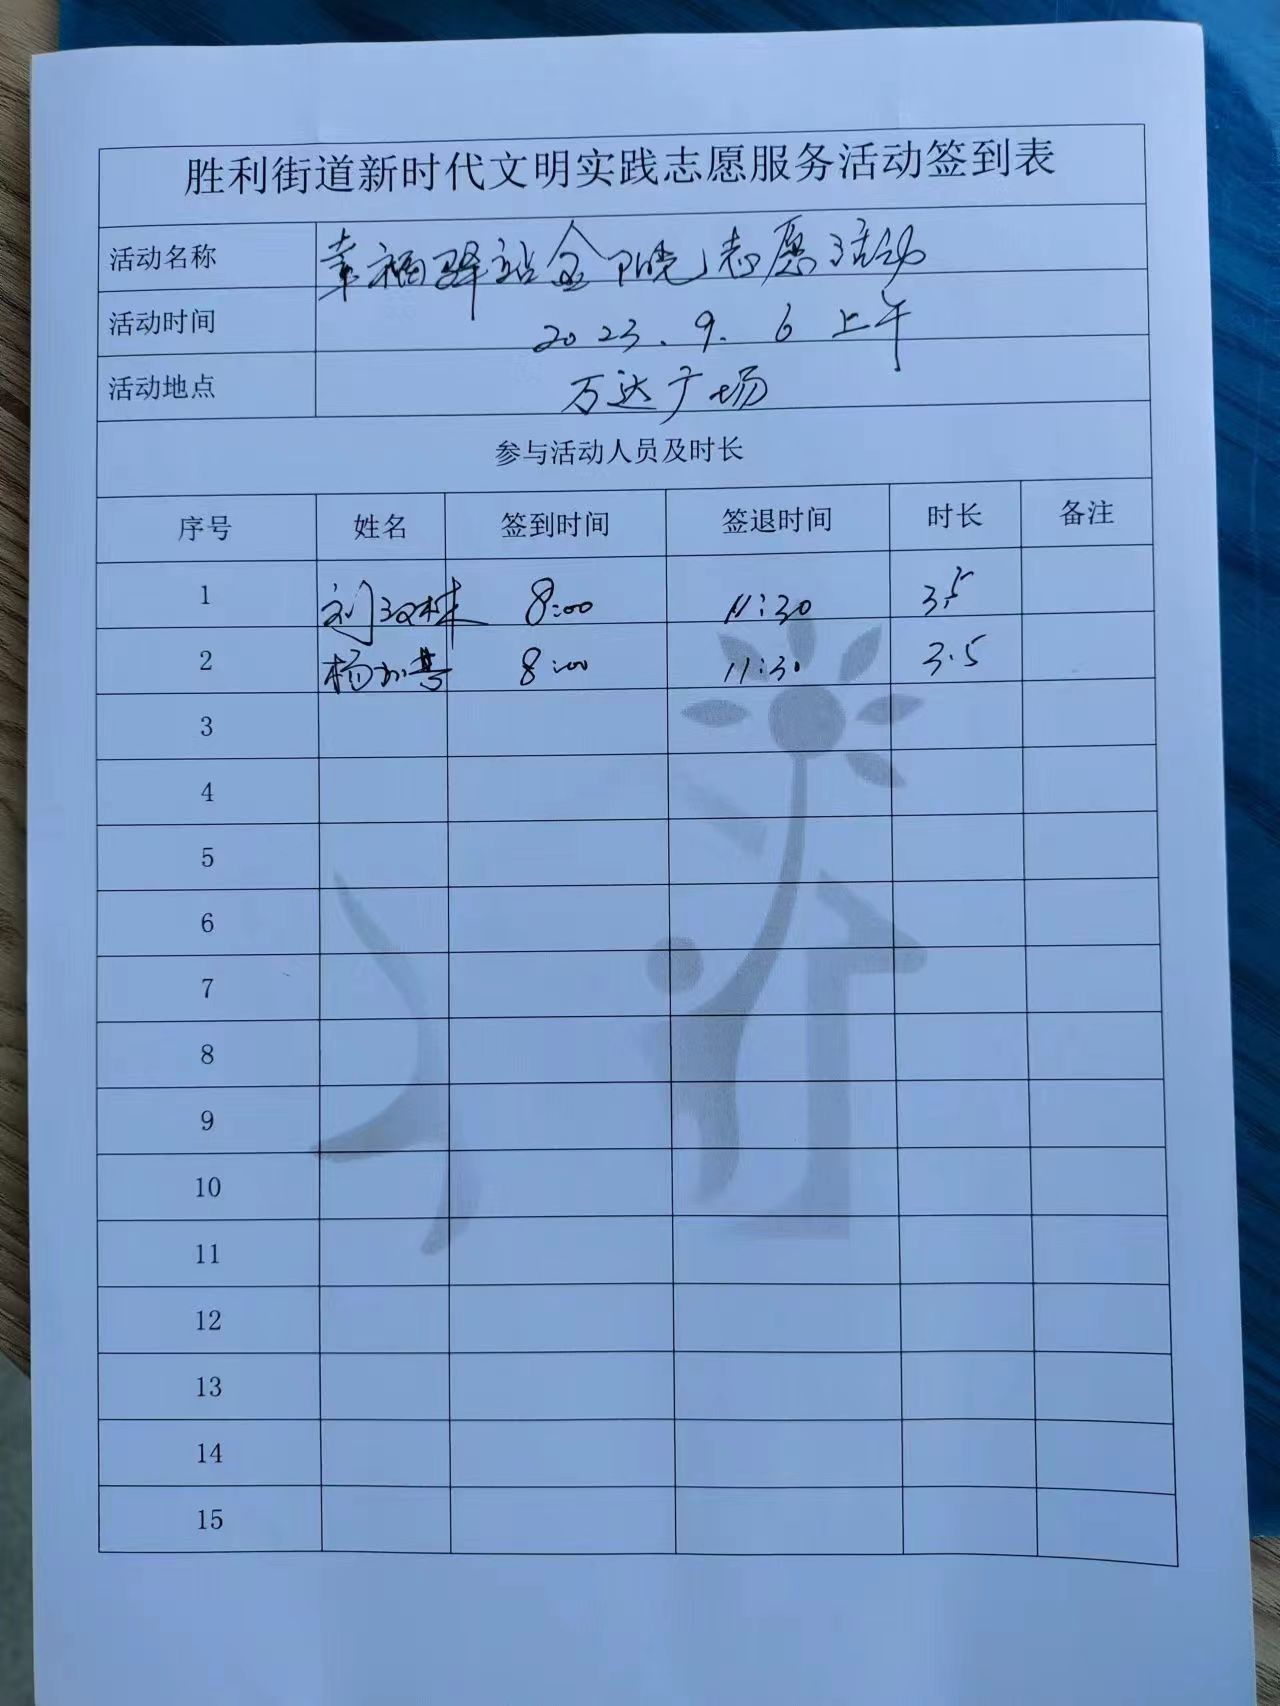 胜利街道新时代文明实践志愿服务活动签到表
活动名称 幸福驿站金阳晓志愿活动
活动时间 2023.9.6 上午
活动地点 万达广场
参与活动人员及时长
序号 姓名 签到时间 签退时间 时长 备注
1 刘汉林 8:00 11:30 3.5
2 杨 8:00 11:30 3.5
3
4
5
6
7
8
9
10
11
12
13
14
15